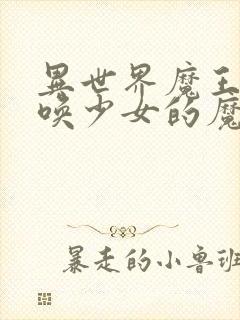 異世界魔王
喚少女的魔
暴走的小魯班